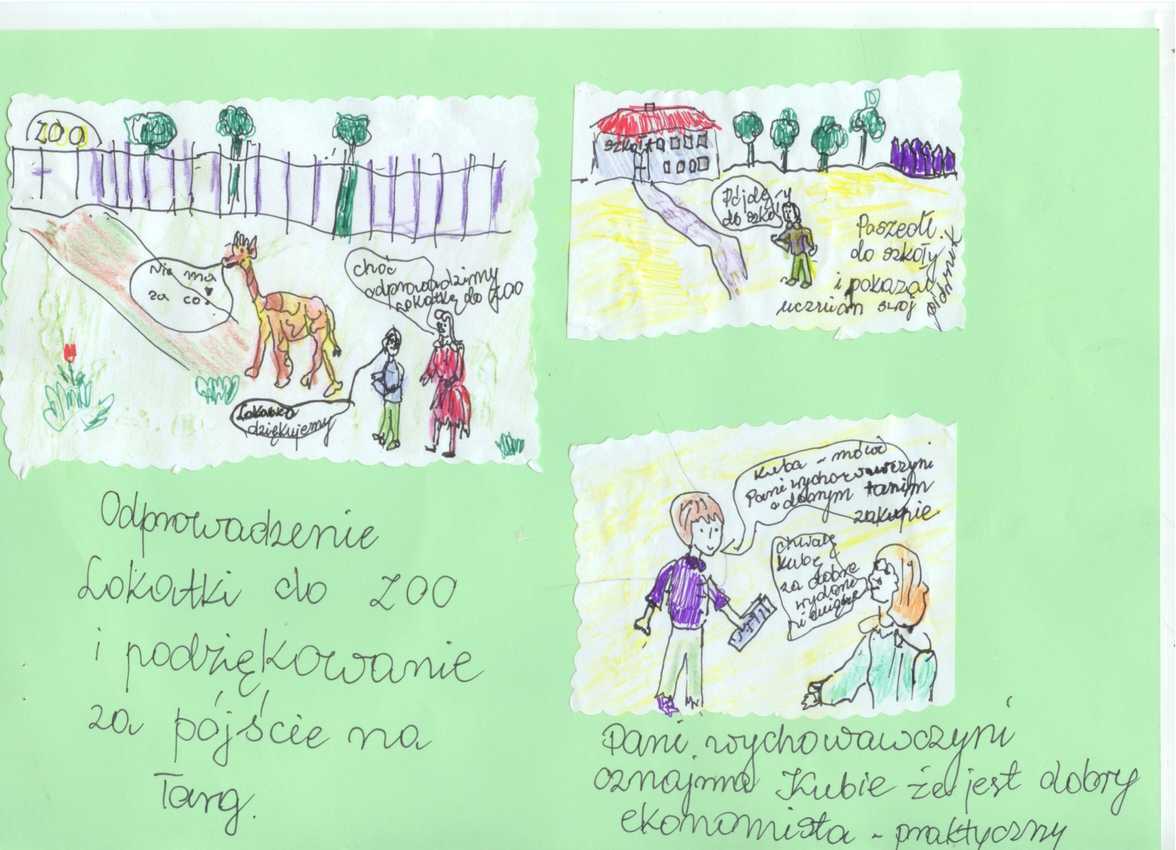 ZOO
Nie ma
za co!
choć
odprowadzimy
Lokatkę do ZOO
Lokatko
dziękujemy
Odprowadzenie
Lokatki do ZOO
i podziękowanie
za pójście na
Targ.
szkoła
Pójdę
do szkoły
Poszedł
do szkoły
i pokazał
uczniom swój
Kuba - mówi
Pani wychowawczyni
o dobrym tanim
zakupie
chwalę
Kubę
za dobre
Pani wychowawczyni
oznajmia Kubie że jest dobry
ekonomista - praktyczny